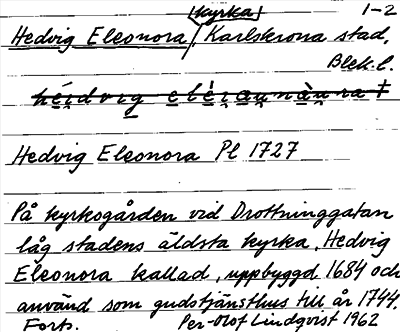 kyrka 1-2
Hedvig Eleonora, Karlskrona stad,
Blek. l.
Hedvig Eleonora Pl 1727
På kyrkogården vid Drottninggatan
låg stadens äldsta kyrka, Hedvig
Eleonora kallad, uppbyggd 1684 och
använd som gudstjänsthus till år 1744.
Forts. Per-Olof Lindqvist 1962